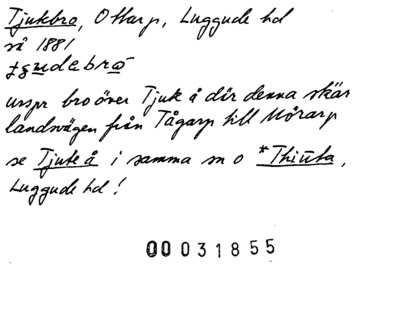 Tjukbro, Ottarp, Luggude hd
så 1881
urspr bro över Tjuk å där denna skär
landsvägen från Tågarp till Mörarp
se Tjuke å i samma sn o *Thiuta,
Luggude hd!
00031855